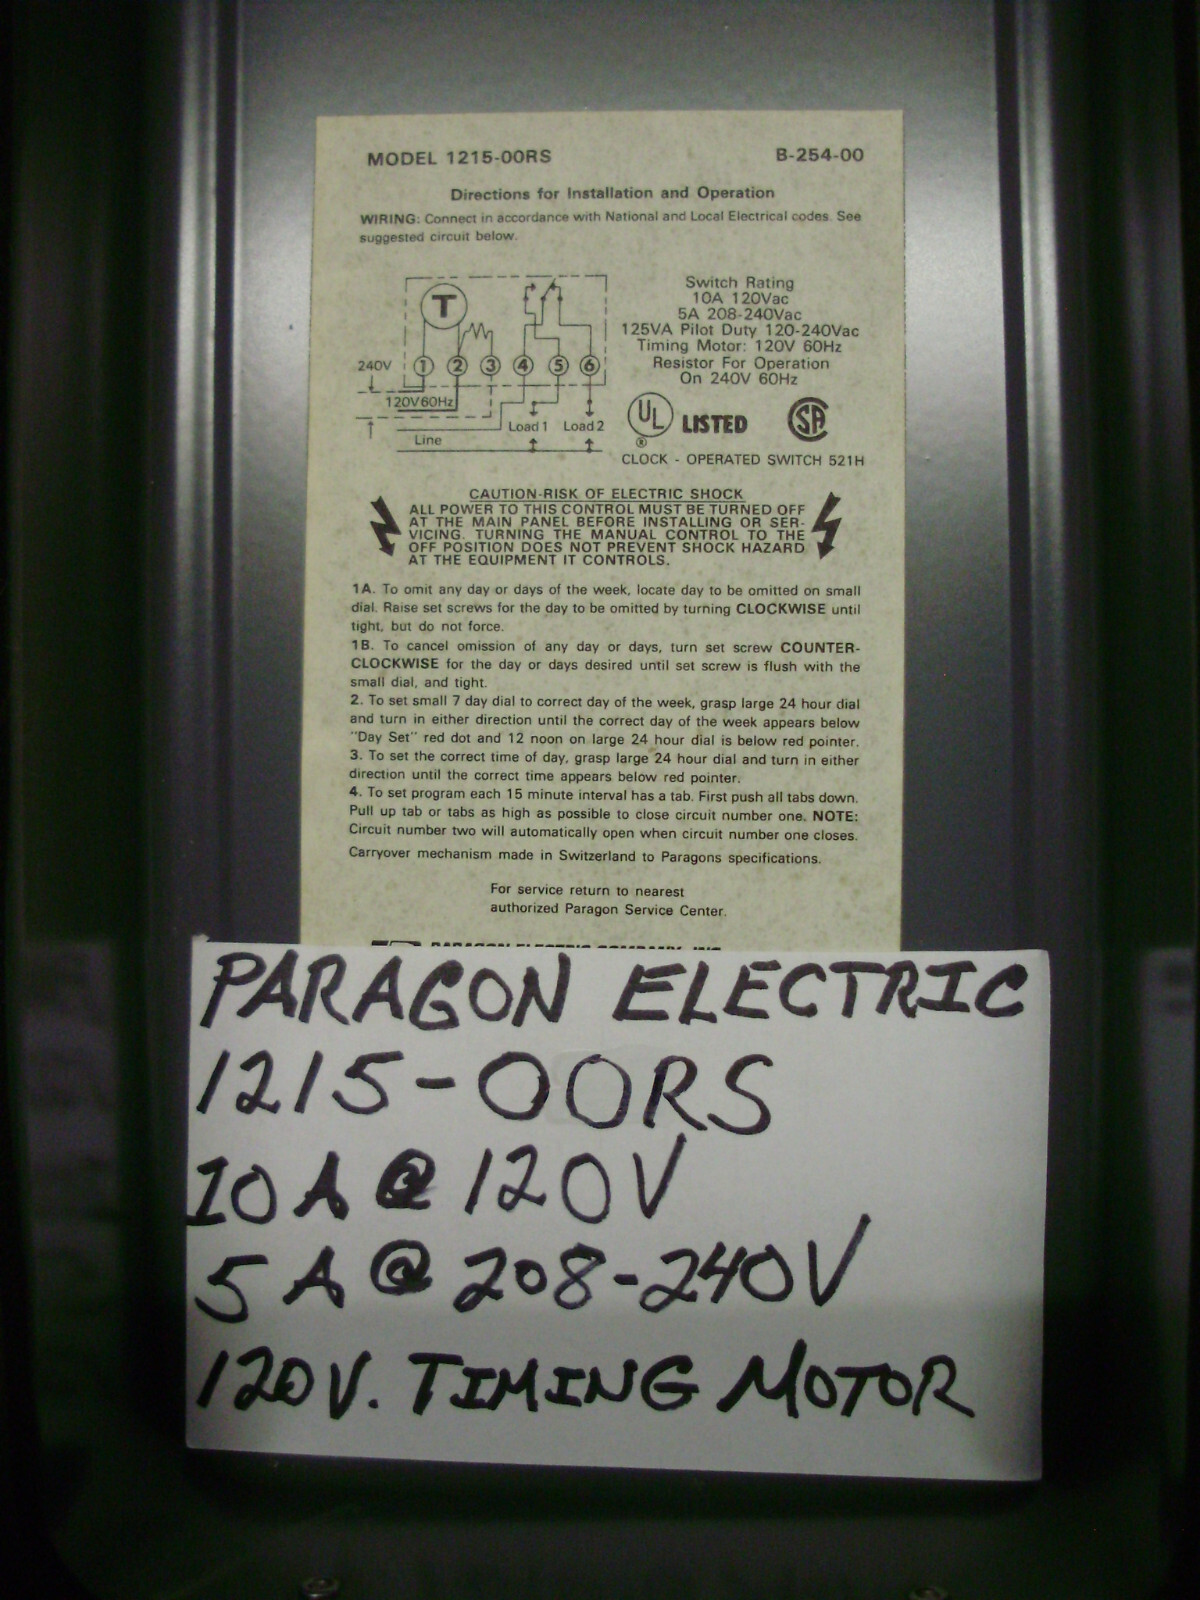 MODEL 1215-00RS B-254-00
Directions for Installation and Operation
WIRING: Connect in accordance with National and Local Electrical codes. See
suggested circuit below.
T
1 2 3 4 5 6
240V
120V60Hz
Load 1 Load 2
Line
Switch Rating
10A 120Vac
5A 208-240Vac
125VA Pilot Duty 120-240Vac
Timing Motor: 120V 60Hz
Resistor For Operation
On 240V 60Hz
UL ® LISTED SA
CLOCK - OPERATED SWITCH 521H
CAUTION-RISK OF ELECTRIC SHOCK
ALL POWER TO THIS CONTROL MUST BE TURNED OFF
AT THE MAIN PANEL BEFORE INSTALLING OR SER-
VICING. TURNING THE MANUAL CONTROL TO THE
OFF POSITION DOES NOT PREVENT SHOCK HAZARD
AT THE EQUIPMENT IT CONTROLS.
1A. To omit any day or days of the week, locate day to be omitted on small
dial. Raise set screws for the day to be omitted by turning CLOCKWISE until
tight, but do not force.
1B. To cancel omission of any day or days, turn set screw COUNTER-
CLOCKWISE for the day or days desired until set screw is flush with the
small dial, and tight.
2. To set small 7 day dial to correct day of the week, grasp large 24 hour dial
and turn in either direction until the correct day of the week appears below
"Day Set" red dot and 12 noon on large 24 hour dial is below red pointer.
3. To set the correct time of day, grasp large 24 hour dial and turn in either
direction until the correct time appears below red pointer.
4. To set program each 15 minute interval has a tab. First push all tabs down.
Pull up tab or tabs as high as possible to close circuit number one. NOTE:
Circuit number two will automatically open when circuit number one closes.
Carryover mechanism made in Switzerland to Paragons specifications.
For service return to nearest
authorized Paragon Service Center.
PARAGON ELECTRIC COMPANY, INC.
PARAGON ELECTRIC
1215-00RS
10 A @ 120V
5 A @ 208-240V
120V. TIMING MOTOR